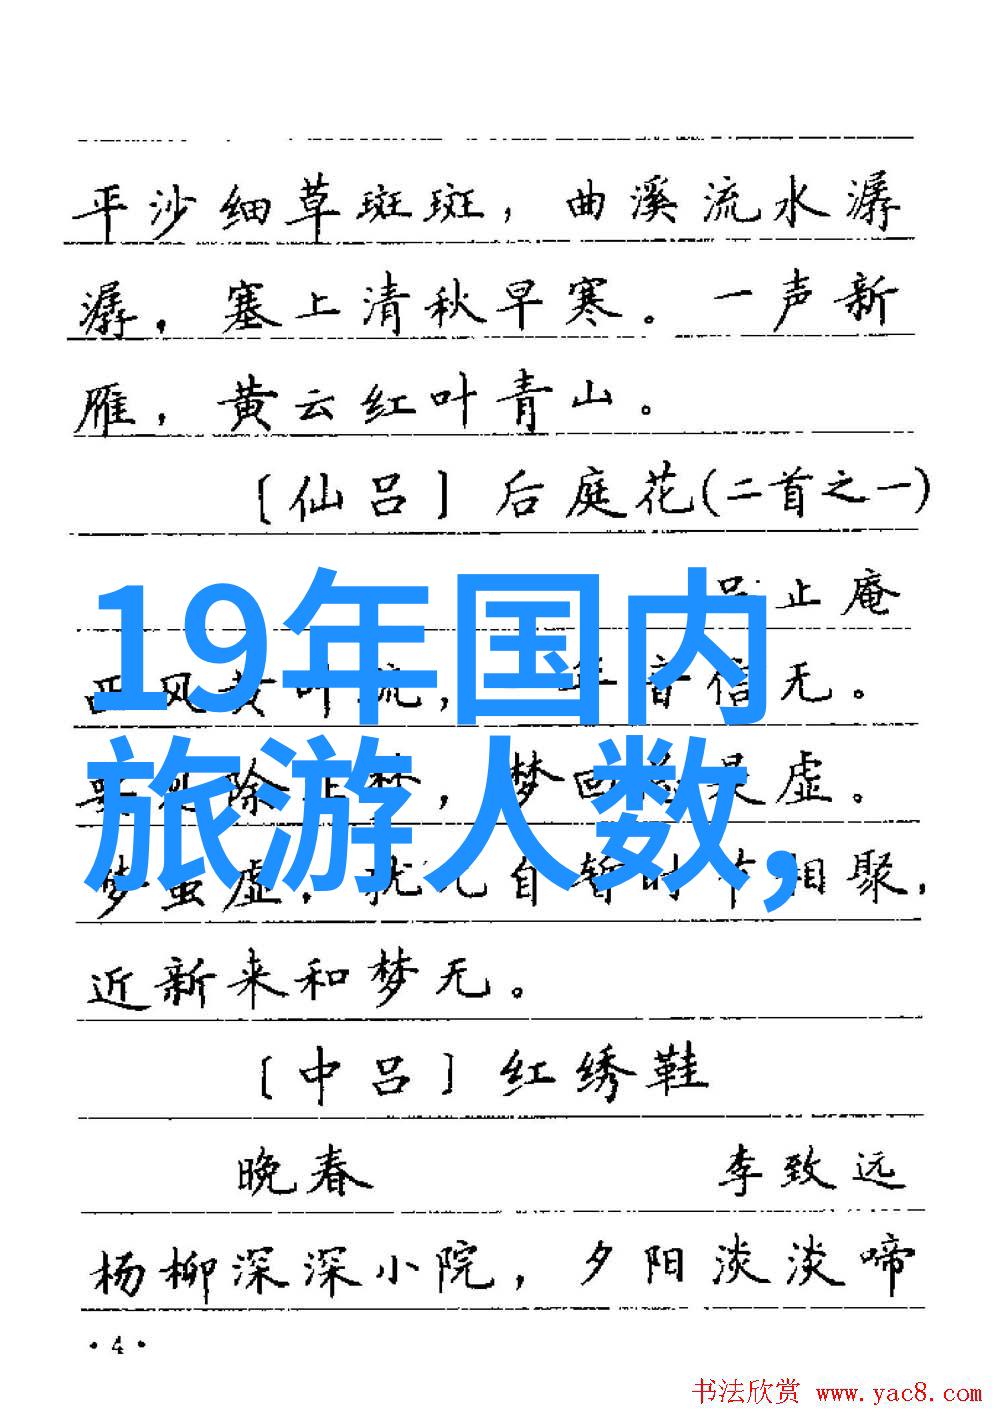 平沙细草斑斑，曲溪流水潺
潺，塞上清秋早寒。一声新
雁，黄云红叶青山。
〔仙吕〕后庭花(二首之一)
吕止庵
西风黄叶疏，年音信无。
要见除非梦，梦回总是虚。
梦虽虚，犹兀自暂时节相聚，
近新来和梦无。
〔中吕〕红绣鞋
晚春 李致远
杨柳深深小院，夕阳淡淡啼
·4·
19年国内
旅游人数,
书法欣赏 www.yac8.com